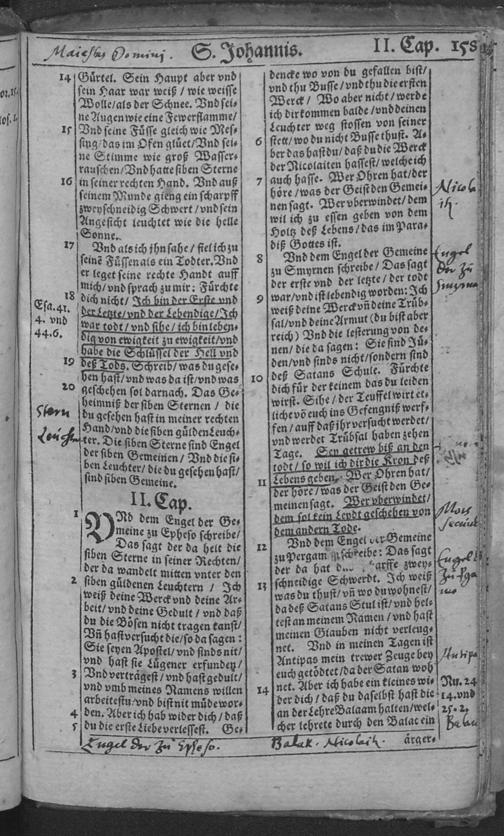 Maiestas Domini.
S. Johannis.
II. Cap. 158
14 Gürtel. Sein Haupt aber vnd
sein Haar war weiß / wie weisse
Wolle / als der Schnee. Vnd sei-
ne Augen wie eine Fewerflamme /
15 Vnd seine Füsse gleich wie Mes-
sing / das im Ofen glüet / Vnd sei-
ne Stimme wie groß Wasser-
rauschen / Vnd hatte siben Sterne
16 in seiner rechten Hand. Vnd auß
seinem Munde gieng ein scharpff
zweyschneidig Schwert / vnd sein
Angesicht leuchtet wie die helle
Sonne.
17 Vnd als ich jhn sahe / fiel ich zu
seine Füssen als ein Todter. Vnd
er leget seine rechte Handt auff
mich / vnd sprach zu mir: Fürchte
18 dich nicht / Ich bin der Erste vnd
Esa.41.
4. vnd
44.6.
der Letzte / vnd der Lebendige / Ich
war todt / vnd sihe / ich bin leben-
dig von ewigkeit zu ewigkeit / vnd
habe die Schlüssel der Hell vnd
19 deß Tods. Schreib / was du gese-
hen hast / vnd was da ist / vnd was
20 geschehen sol darnach. Das Ge-
heimniß der siben Sternen / die
Stern
du gesehen hast in meiner rechten
Hand / vnd die siben gülden Leuch-
ter. Die siben Sterne sind Engel
der siben Gemeinen / Vnd die si-
ben Leuchter / die du gesehen hast /
sind siben Gemeine.
II. Cap.
1 VNd dem Engel der Ge-
meine zu Epheso schreibe /
Das sagt der da helt die
siben Sterne in seiner Rechten /
der da wandelt mitten vnter den
2 siben güldenen Leuchtern / Ich
weiß deine Werck vnd deine Ar-
beit / vnd deine Gedult / vnd daß
du die Bösen nicht tragen kanst /
Vñ hast versucht die / so da sagen:
Sie seyen Apostel / vnd sinds nit /
vnd hast sie Lügener erfunden /
3 Vnd verträgest / vnd hast gedult /
vnd vmb meines Namens willen
arbeitestu / vnd bist nit müde wor-
4 den. Aber ich hab wider dich / daß
5 du die erste Liebe verlessest. Ge-
Engel der zu Epheso.
dencke wo von du gefallen bist /
vnd thu Busse / vnd thu die ersten
Werck / Wo aber nicht / werde
ich dir kommen balde / vnd deinen
Leuchter weg stossen von seiner
6 stett / wo du nicht Busse thust. A-
ber das hastu / daß du die Werck
der Nicolaiten hassest / welche ich
7 auch hasse. Wer Ohren hat / der
höre / was der Geist den Gemei-
nen sagt. Wer vberwindet / dem
wil ich zu essen geben von dem
Holtz deß Lebens / das im Para-
diß Gottes ist.
8 Vnd dem Engel der Gemeine
Engel
der zu
Smyrna
zu Smyrnen schreibe / Das sagt
der erste vnd der letzte / der todt
9 war / vnd ist lebendig worden: Ich
weiß deine Werck vñ deine Trüb-
sal / vnd deine Armut (du bist aber
reich) Vnd die lesterung von de-
nen / die da sagen: Sie sind Jü-
den / vnd sinds nicht / sondern sind
10 deß Satans Schule. Fürchte
dich für der keinem das du leiden
wirst. Sihe / der Teuffel wirt et-
liche võ euch ins Gefengniß werf-
fen / auff daß jhr versucht werdet /
vnd werdet Trübsal haben zehen
Tage. Sey getrew biß an den
todt / so wil ich dir die Kron deß
11 Lebens geben. Wer Ohren hat /
der höre / was der Geist den Ge-
meinen sagt. Wer vberwindet /
dem sol kein Leydt geschehen von
dem andern Tode.
Mors
secunda
12 Vnd dem Engel der Gemeine
zu Pergam schreibe: Das sagt
der da hat zwey-
schneidige Schwerdt. Ich weiß
13 was du thust / vñ wo du wohnest /
da deß Satans Stul ist / vnd hel-
test an meinem Namen / vnd hast
meinen Glauben nicht verleug-
net. Vnd in meinen Tagen ist
Antipas mein trewer Zeuge bey
Antipas
euch getödtet / da der Satan woh-
14 net. Aber ich habe ein kleines wi-
Nu. 24
14. vnd
25. 2.
der dich / daß du daselbst hast die
an der Lehre Balaam halten / wel-
cher lehrete durch den Balac ein
Balak. Nicolait.
ärger-